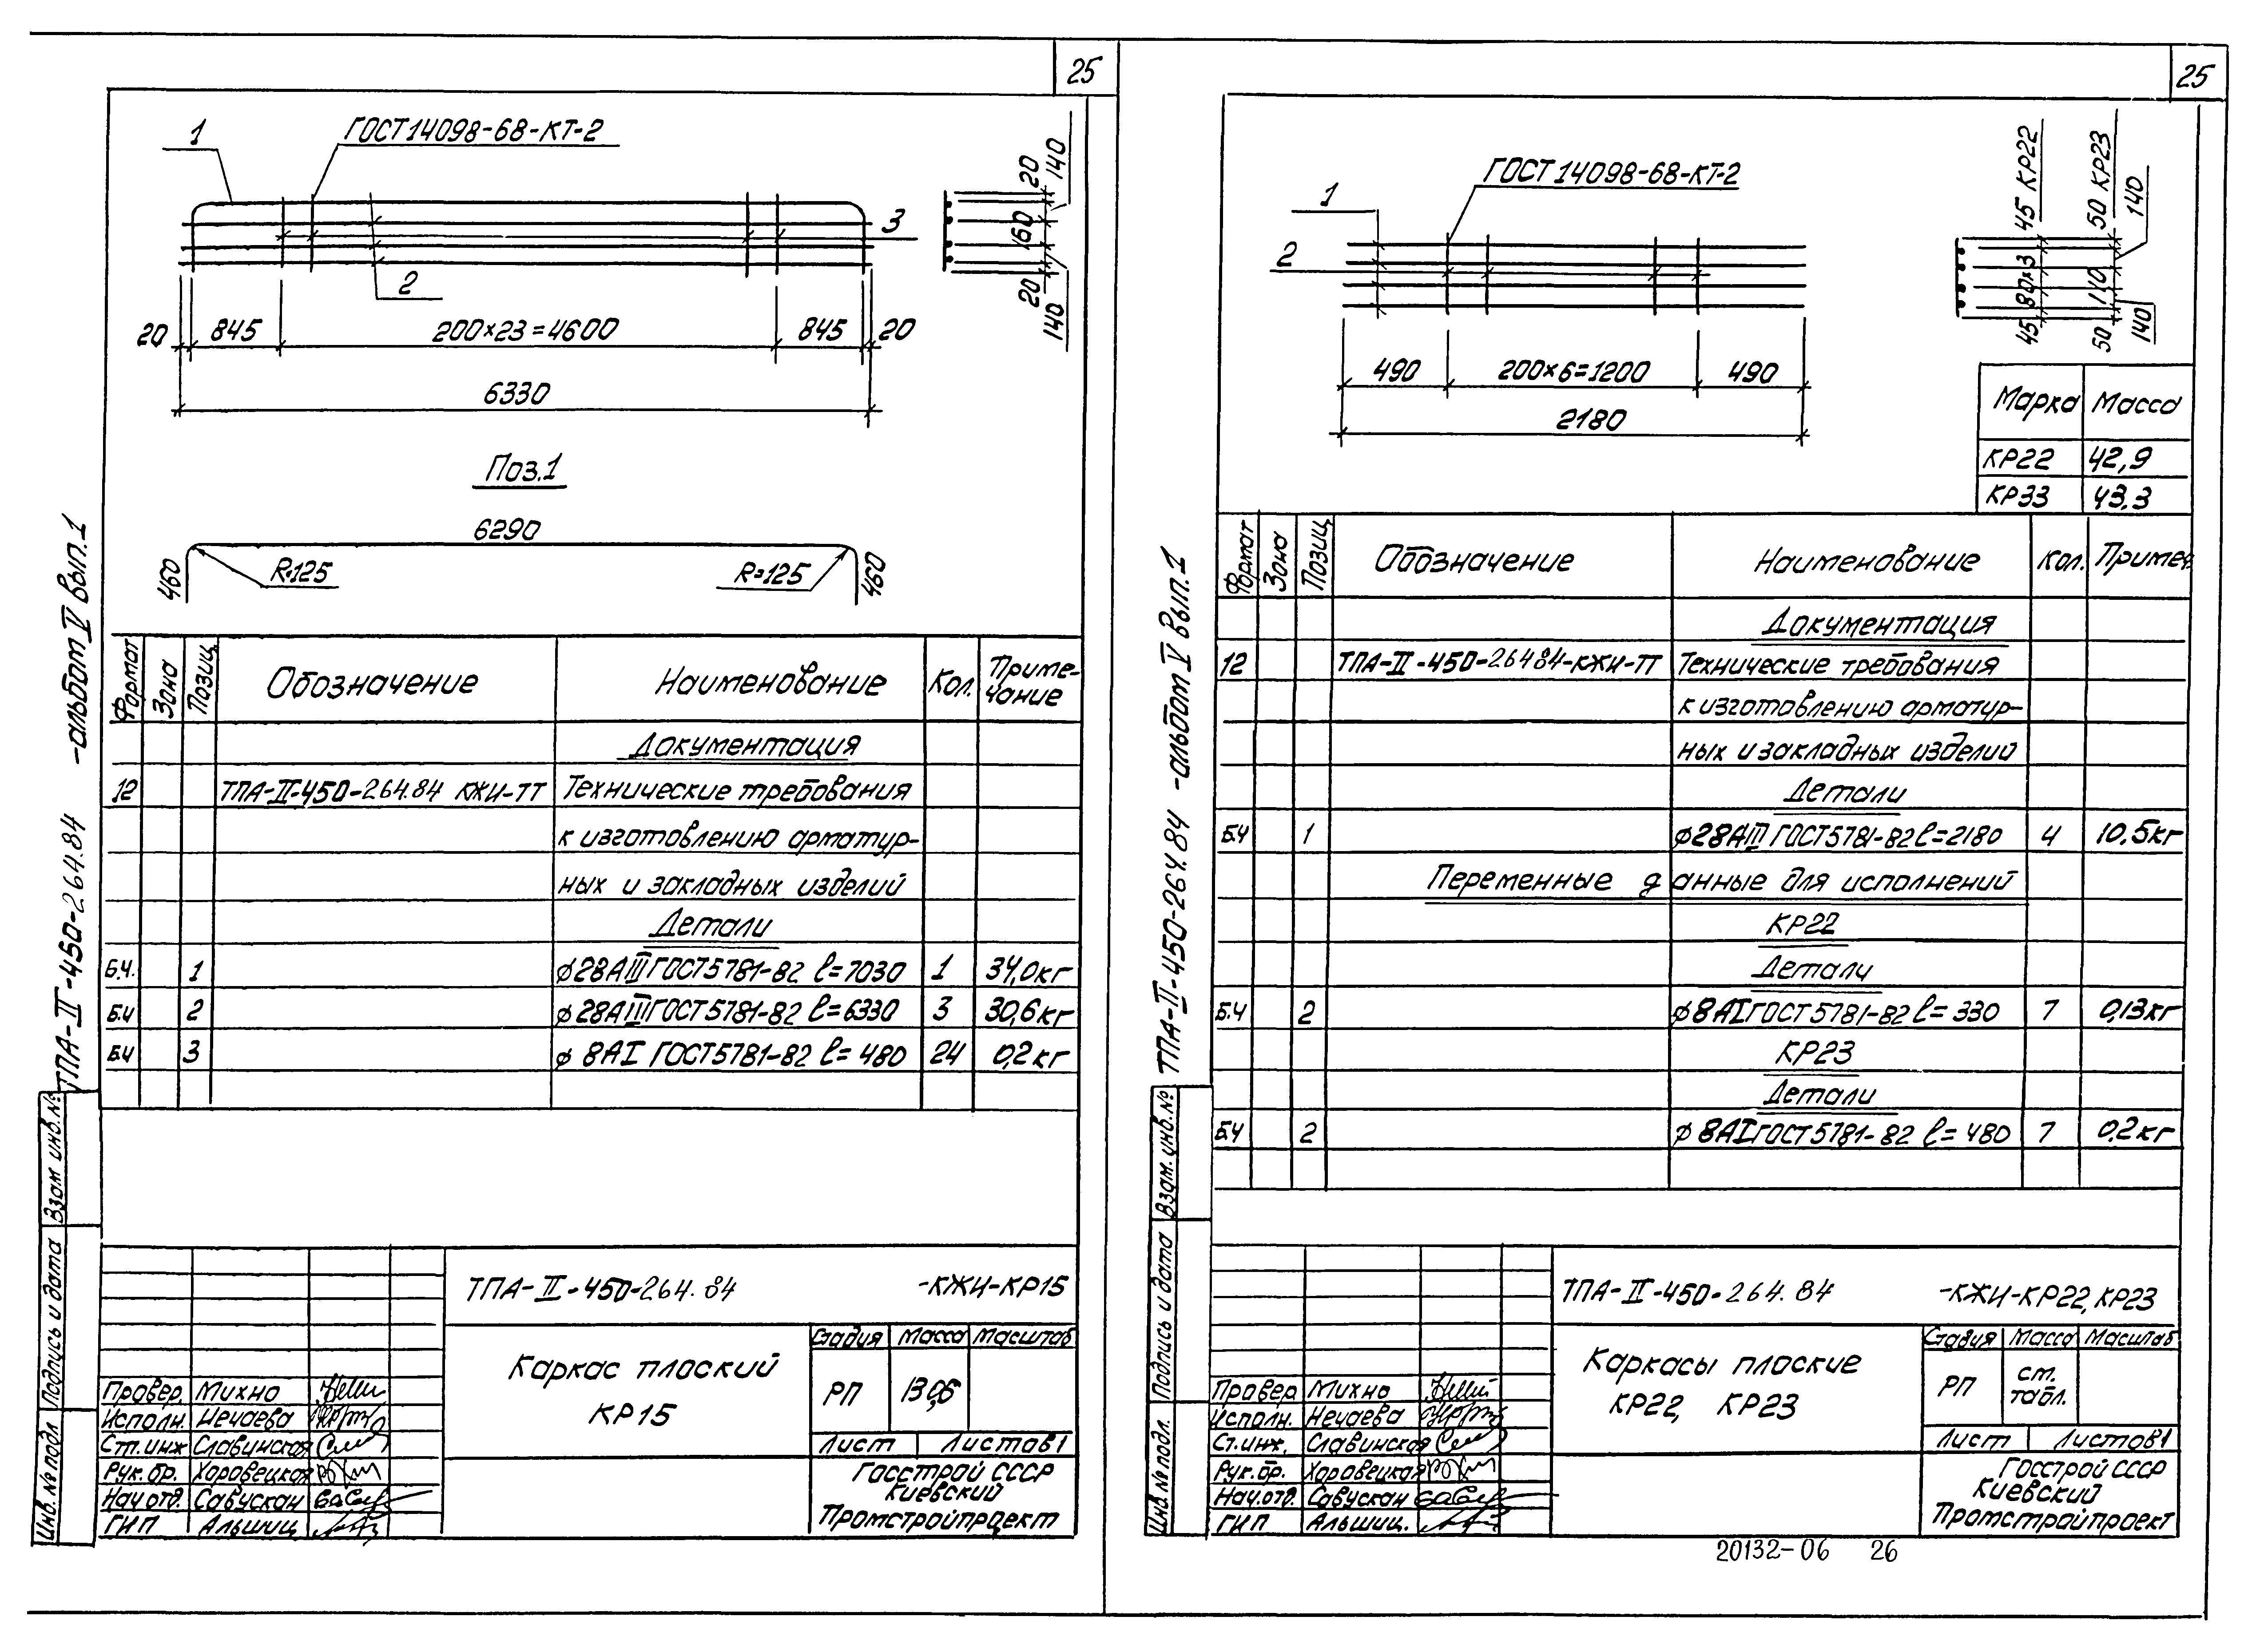 25
1
ГОСТ 14098-68-КТ-2
3
2
20
845
200×23=4600
845
20
6330
20
140
160
20
140
Поз.1
6290
R=125
R=125
460
460
ТПА-II-450-264.84 -альбом V вып.1
Формат Зона Позиц. Обозначение Наименование Кол. Приме-
чание
Документация
12 ТПА-II-450-264.84 КЖИ-ТТ Технические требования
к изготовлению арматур-
ных и закладных изделий
Детали
Б.Ч. 1 ⌀28АIII ГОСТ5781-82 ℓ=7030 1 34,0кг
Б.Ч 2 ⌀28АIII ГОСТ5781-82 ℓ=6330 3 30,6кг
Б.Ч 3 ⌀ 8АI ГОСТ5781-82 ℓ= 480 24 0,2кг
Взам инв.№
Подпись и дата
Инв.№ подл
ТПА-II-450-264.84 -КЖИ-КР15
Каркас плоский
КР15
Стадия Масса Масштаб
РП 130,6
Лист Листов 1
Госстрой СССР
Киевский
Промстройпроект
Провер. Михно
Исполн. Нечаева
Ст.инж Славинская
Рук.бр. Харавецкая
Нач.отд. Савускан
ГИП Альшиц
25
1
ГОСТ 14098-68-КТ-2
2
490
200×6=1200
490
2180
45 КР22
50 КР23
140
80×3
110
45
50
140
Марка Масса
КР22 42,9
КР33 43,3
ТПА-II-450-264.84 -альбом V вып.1
Формат Зона Позиц Обозначение Наименование Кол. Примеч.
Документация
12 ТПА-II-450-264.84-КЖИ-ТТ Технические требования
к изготовлению арматур-
ных и закладных изделий
Детали
Б.Ч 1 ⌀28АIII ГОСТ5781-82 ℓ=2180 4 10.5кг
Переменные данные для исполнений
КР22
Детали
Б.Ч 2 ⌀8АI ГОСТ5781-82 ℓ= 330 7 0,13кг
КР23
Детали
Б.Ч 2 ⌀ 8АI ГОСТ5781-82 ℓ= 480 7 0.2кг
Взам. инв.№
Подпись и дата
Инв.№ подл.
ТПА-II-450-264.84 -КЖИ-КР22, КР23
Каркасы плоские
КР22, КР23
Стадия Масса Масштаб
РП ст.
табл.
Лист Листов 1
Госстрой СССР
Киевский
Промстройпроект
Провер Михно
Исполн. Нечаева
Ст.инж. Славинская
Рук.бр. Харавецкая
Нач.отд. Савускан
ГИП Альшиц.
20132-06 26